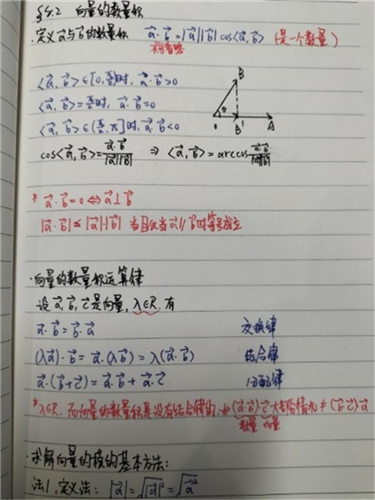 §4.2 向量的数量积
·定义 a⃗与b⃗的数量积 a⃗·b⃗=|a⃗||b⃗|cos<a⃗,b⃗> (是一个数量)
不可省略
<a⃗,b⃗>∈[0,π/2)时, a⃗·b⃗>0
<a⃗,b⃗>=π/2时, a⃗·b⃗=0
<a⃗,b⃗>∈(π/2,π]时, a⃗·b⃗<0
B
θ
O B' A
cos<a⃗,b⃗>=a⃗·b⃗/|a⃗||b⃗| ⇒ <a⃗,b⃗>=arccos a⃗·b⃗/|a⃗||b⃗|
* a⃗·b⃗=0⇔a⃗⊥b⃗
|a⃗·b⃗|≤|a⃗|·|b⃗| 当且仅当a⃗//b⃗时等号成立
·向量的数量积运算律
设a⃗,b⃗,c⃗是向量,λ∈R.有
a⃗·b⃗=b⃗·a⃗ 交换律
(λa⃗)·b⃗=a⃗·(λb⃗)=λ(a⃗·b⃗) 结合律
a⃗·(b⃗+c⃗)=a⃗·b⃗+a⃗·c⃗ 分配律
*λ∈R.而向量的数量积是没有结合律的, (a⃗·b⃗)·c⃗大部分情况≠(b⃗·c⃗)·a⃗
数量 向量
·求解向量的模的基本方法:
法1,定义法: |a⃗|=√|a⃗|²=√a⃗²